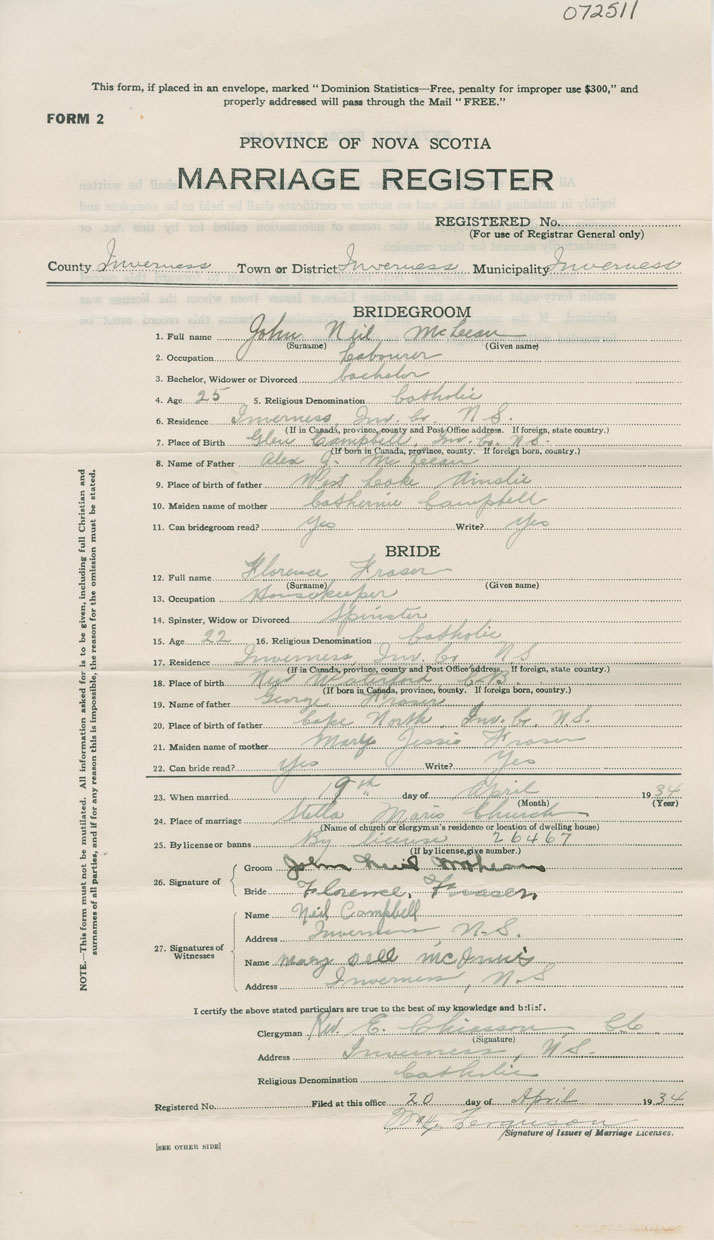 072511
This form, if placed in an envelope, marked "Dominion Statistics—Free, penalty for improper use $300," and
properly addressed will pass through the Mail "FREE."
FORM 2
PROVINCE OF NOVA SCOTIA
MARRIAGE REGISTER
REGISTERED No.
(For use of Registrar General only)
County Inverness Town or District Inverness Municipality Inverness
BRIDEGROOM
1. Full name John Neil McLean
(Surname) (Given name)
2. Occupation Labourer
3. Bachelor, Widower or Divorced bachelor
4. Age 25 5. Religious Denomination Catholic
6. Residence Inverness Inv. Co. N S.
(If in Canada, province, county and Post Office address. If foreign, state country.)
7. Place of Birth Glen Campbell, Inv. Co. N S.
(If born in Canada, province, county. If foreign born, country.)
8. Name of Father Alex G. McLean
9. Place of birth of father West Lake Ainslie
10. Maiden name of mother Catherine Campbell
11. Can bridegroom read? Yes Write? Yes
BRIDE
12. Full name Florence Fraser
(Surname) (Given name)
13. Occupation Housekeeper
14. Spinster, Widow or Divorced Spinster
15. Age 22 16. Religious Denomination Catholic
17. Residence Inverness, Inv. Co N S
(If in Canada, province, county and Post Office address. If foreign, state country.)
18. Place of birth New Waterford C.B.
(If born in Canada, province, county. If foreign born, country.)
19. Name of father George Fraser
20. Place of birth of father Cape North, Inv. Co. N S.
21. Maiden name of mother Mary Jessie Fraser
22. Can bride read? Yes Write? Yes
23. When married 19th day of April 1934
(Month) (Year)
24. Place of marriage Stella Maris Church
(Name of church or clergyman's residence or location of dwelling house)
25. By license or banns By license 26467
(If by license, give number.)
26. Signature of
Groom John Neil McLean
Bride Florence, Fraser,
27. Signatures of Witnesses
Name Neil Campbell
Address Inverness, N.S.
Name mary dell mcInnis
Address Inverness, N-S
I certify the above stated particulars are true to the best of my knowledge and belief.
Clergyman Rev. E. Chiasson,
(Signature)
Address Inverness, N.S.
Religious Denomination Catholic
Registered No. Filed at this office 20 day of April 1934
Ferguson
Signature of Issuer of Marriage Licenses.
[SEE OTHER SIDE]
NOTE.—This form must not be mutilated. All information asked for is to be given, including full Christian and
surnames of all parties, and if for any reason this is impossible, the reason for the omission must be stated.